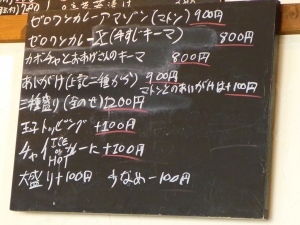 ゼロワンカレーアマゾン(マトン)900円
ゼロワンカレーX(牛すじキーマ) 800円
カボチャとおあげさんのキーマ 800円
あいがけ(上記二種から) 900円
マトンとのあいがけは+100円
三種盛り(全のせ)1200円
玉子トッピング +100円
チャイ ICE or HOT カレーに+100円
大盛り+100円 少なめ-100円